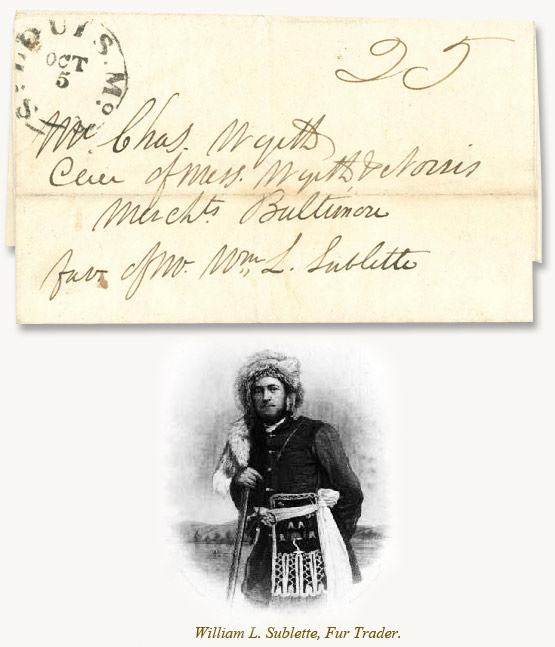 ST. LOUIS. Mo.
OCT
5
25
Mr. Chas. Wyeth
Care of Mess. Wyeth & Norris
Merchts Baltimore
favr of Mr. Wm. L. Sublette
William L. Sublette, Fur Trader.